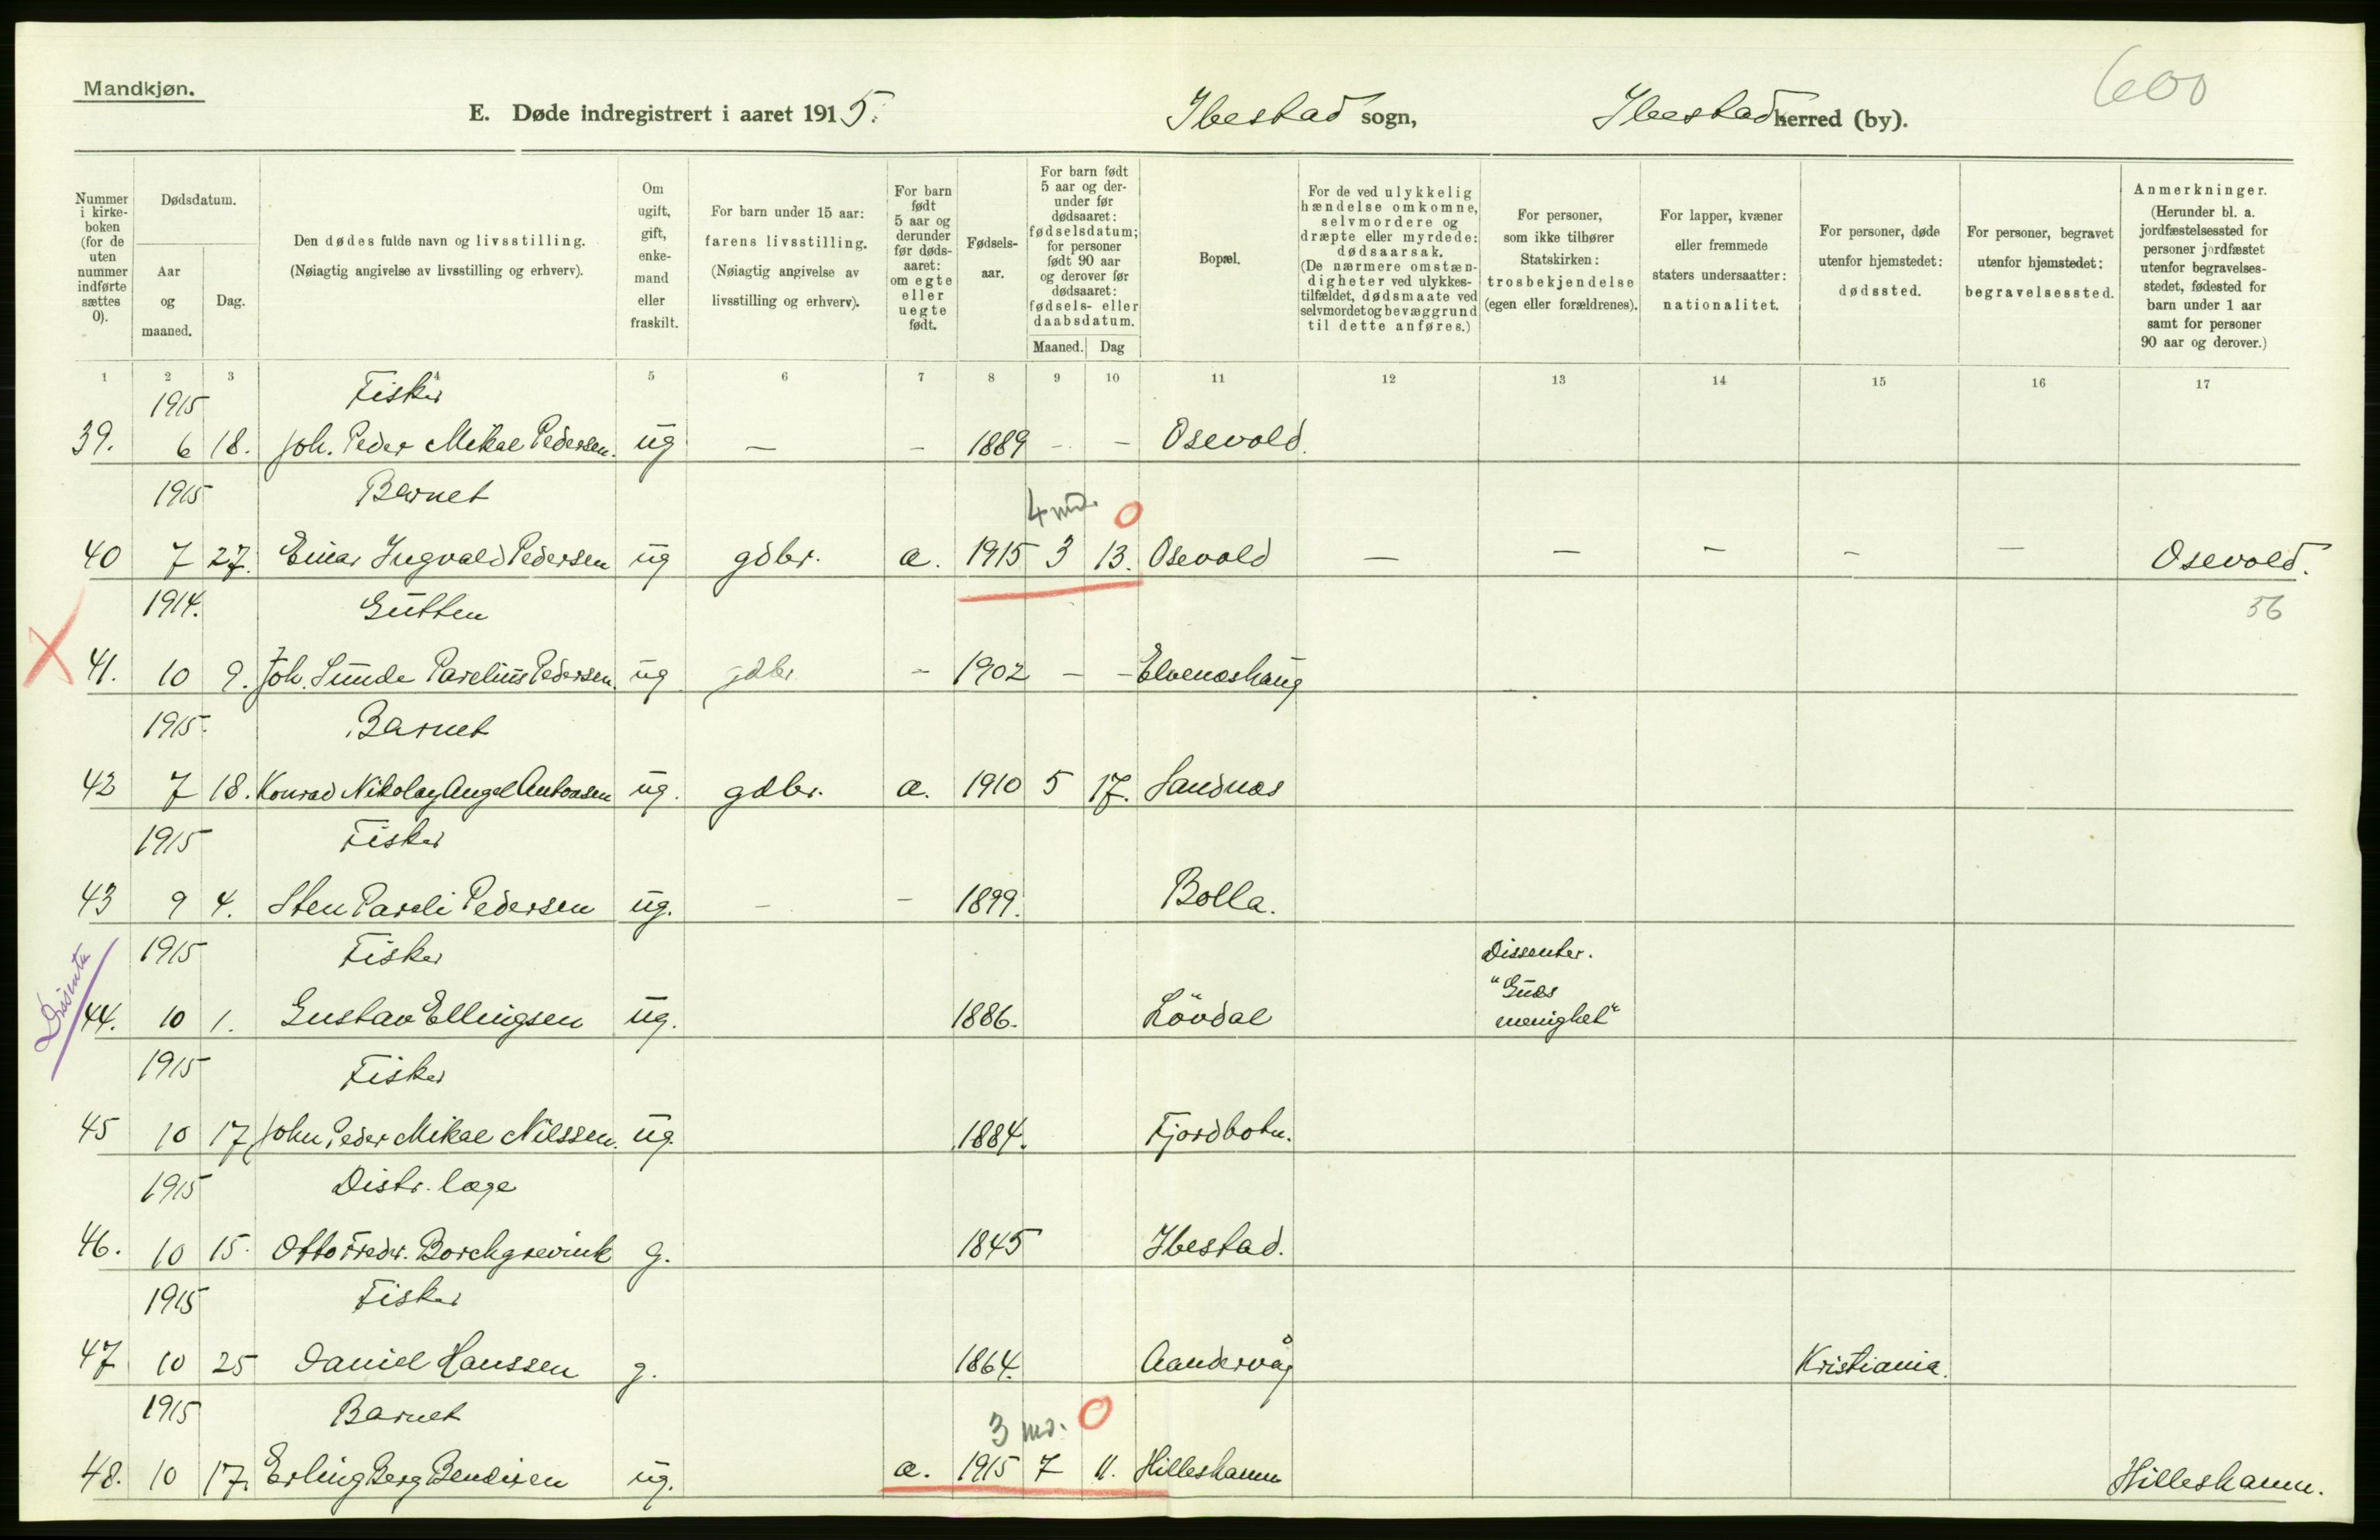 Mandkjøn.
600
E. Døde indregistrert i aaret 1915. Ibestad sogn, Ibestad herred (by).
Nummer i kirkeboken (for de uten nummer indførte sættes 0).
Dødsdatum.
Aar og maaned.
Dag.
Den dødes fulde navn og livsstilling.
(Nøiagtig angivelse av livsstilling og erhverv).
Om ugift, gift, enkemand eller fraskilt.
For barn under 15 aar: farens livsstilling.
(Nøiagtig angivelse av livsstilling og erhverv).
For barn født 5 aar og derunder før dødsaaret: om egte eller uegte født.
Fødselsaar.
For barn født 5 aar og derunder før dødsaaret: fødselsdatum; for personer født 90 aar og derover før dødsaaret: fødsels- eller daabsdatum.
Maaned. Dag
Bopæl.
For de ved ulykkelig hændelse omkomne, selvmordere og dræpte eller myrdede: dødsaarsak.
(De nærmere omstændigheter ved ulykkestilfældet, dødsmaate ved selvmordet og bevæggrund til dette anføres.)
For personer, som ikke tilhører Statskirken: trosbekjendelse (egen eller forældrenes).
For lapper, kvæner eller fremmede staters undersaatter: nationalitet.
For personer, døde utenfor hjemstedet: dødssted.
For personer, begravet utenfor hjemstedet: begravelsessted.
Anmerkninger.
(Herunder bl. a. jordfæstelsessted for personer jordfæstet utenfor begravelsesstedet, fødested for barn under 1 aar samt for personer 90 aar og derover.)
1 2 3 4 5 6 7 8 9 10 11 12 13 14 15 16 17
1915 Fisker
39. 6 18. Joh. Peder Mikal Pedersen. ug — - 1889 - - Osevold.
1915 Barnet 4 md. 0
40 7 27. Einar Ingvald Pedersen ug gdbr. a. 1915 3 13. Osevold — — — — — Osevold.
1914. Gutten 56
X 41. 10 9. Joh. Sunde Parelius Pedersen. ug gdbr - 1902 - - Elvenæshaug
1915. Barnet
42 7 18. Konrad Nikolay Angel Antonsen ug. gdbr. a. 1910 5 17. Sandnæs
1915 Fisker
43 9 4. Sten Pareli Pedersen ug. - - 1899. Bolla.
1915 Fisker Dissenter.
Dissenter 44. 10 1. Gustav Ellingsen ug. 1886. Lövdal "Guds menighet"
1915 Fisker
45 10 17 John Peder Mikal Nilssen. ug. 1884. Fjordbotn.
1915 Distr. læge
46. 10 15. Otto Fredr. Borchgrevink g. 1845 Ibestad.
1915 Fisker
47 10 25 Daniel Hanssen g. 1864. Aandervåg Kristiania.
1915 Barnet 3 md. 0
48. 10 17. Erling Berg Bendixen ug. a. 1915 7 11. Hilleshamn Hilleshamn.